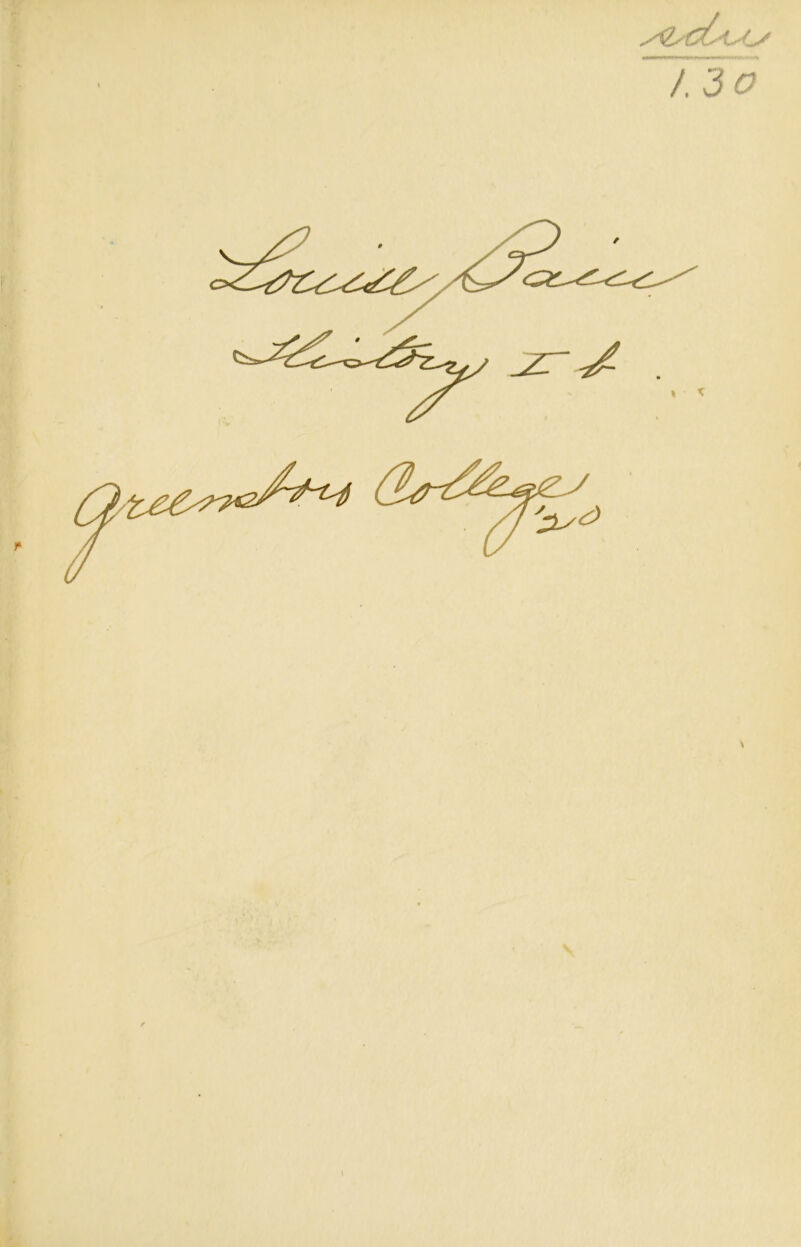 1.30
Louise
History I b.
Greensboro College
'20